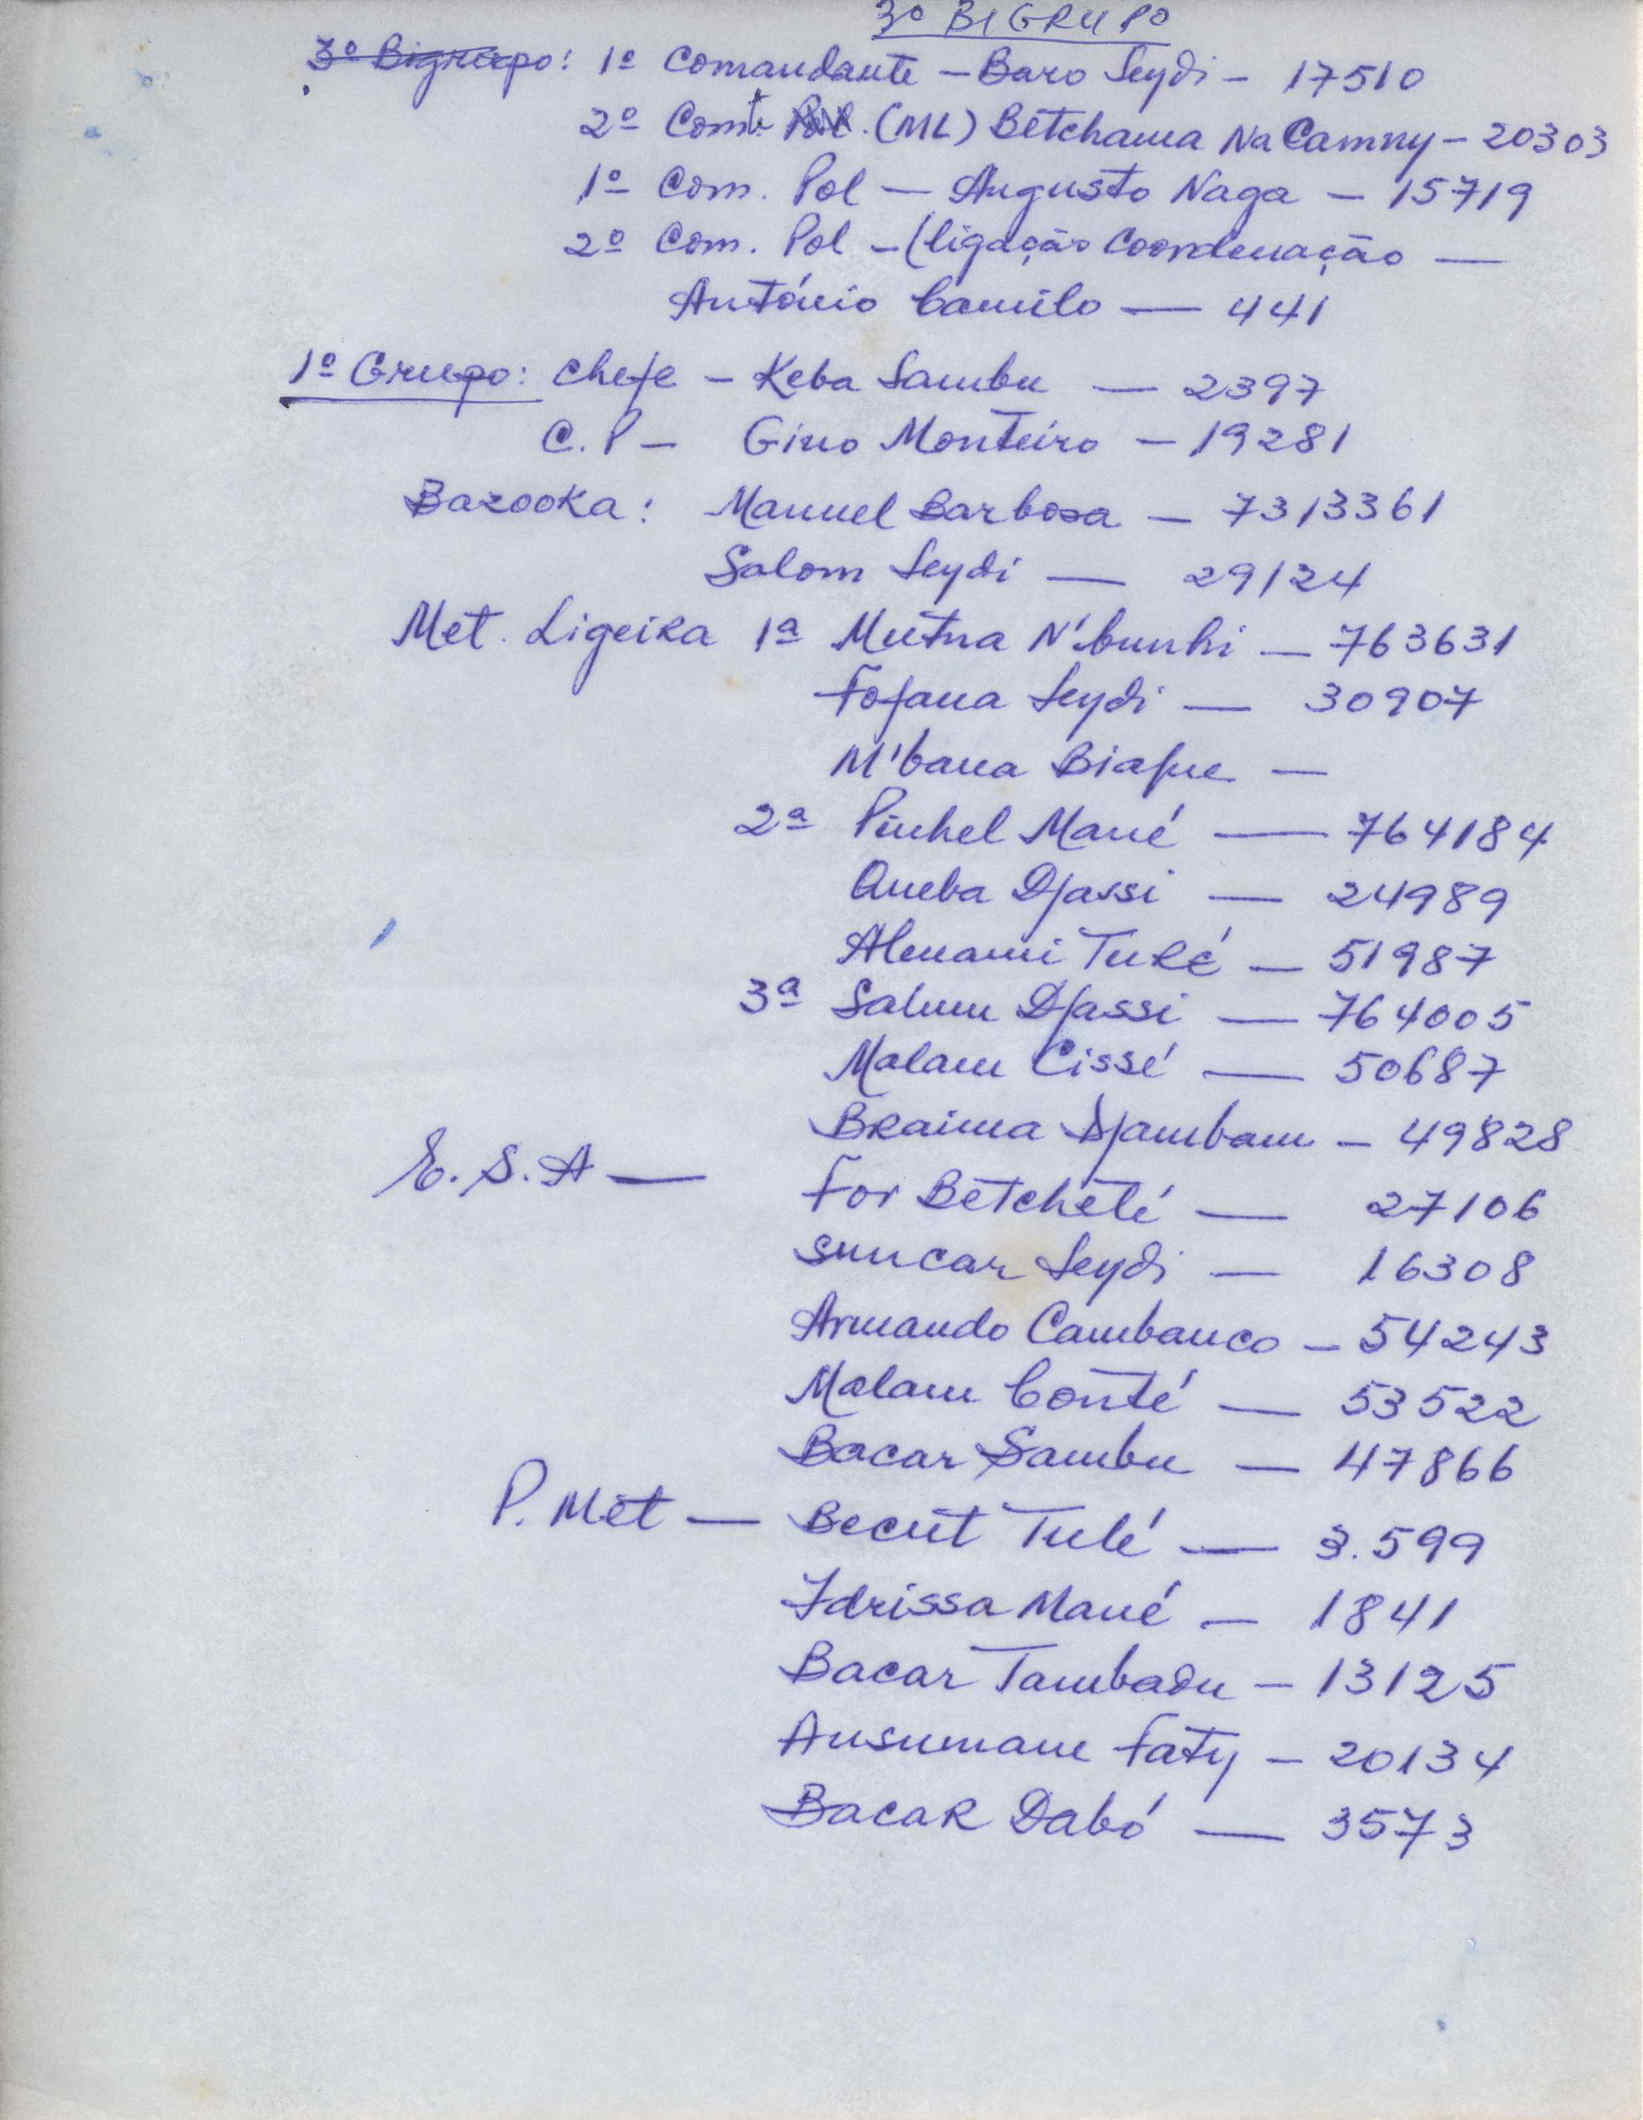 3º BIGRUPO
3º Bigrupo: 1º Comandante - Baro Seydi - 17510
2º Comte Pol. (ML) Betchama Na Camny - 20303
1º Com. Pol - Augusto Naga - 15719
2º Com. Pol - (ligação Coordenação -
António Camilo - 441
1º Grupo: Chefe - Keba Sambu - 2397
C.P - Gino Monteiro - 19281
Bazooka: Manuel Barbosa - 7313361
Salom Seydi - 29124
Met. Ligeira 1ª Mutna N'bunhi - 763631
Fofana Seydi - 30907
M'bana Biafue -
2ª Pinhel Mané - 764184
Queba Djassi - 24989
Alenami Turé - 51987
3ª Salum Djassi - 764005
Malam Cissé - 50687
Braima Djambam - 49828
E.S.A - For Betcheté - 27106
Suncar Seydi - 16308
Armando Cambanco - 54243
Malam Conté - 53522
Bacar Sambu - 47866
P. Met - Becut Tulé - 3.599
Idrissa Mané - 1841
Bacar Tambadu - 13125
Ansumane Faty - 20134
Bacar Dabó - 3573